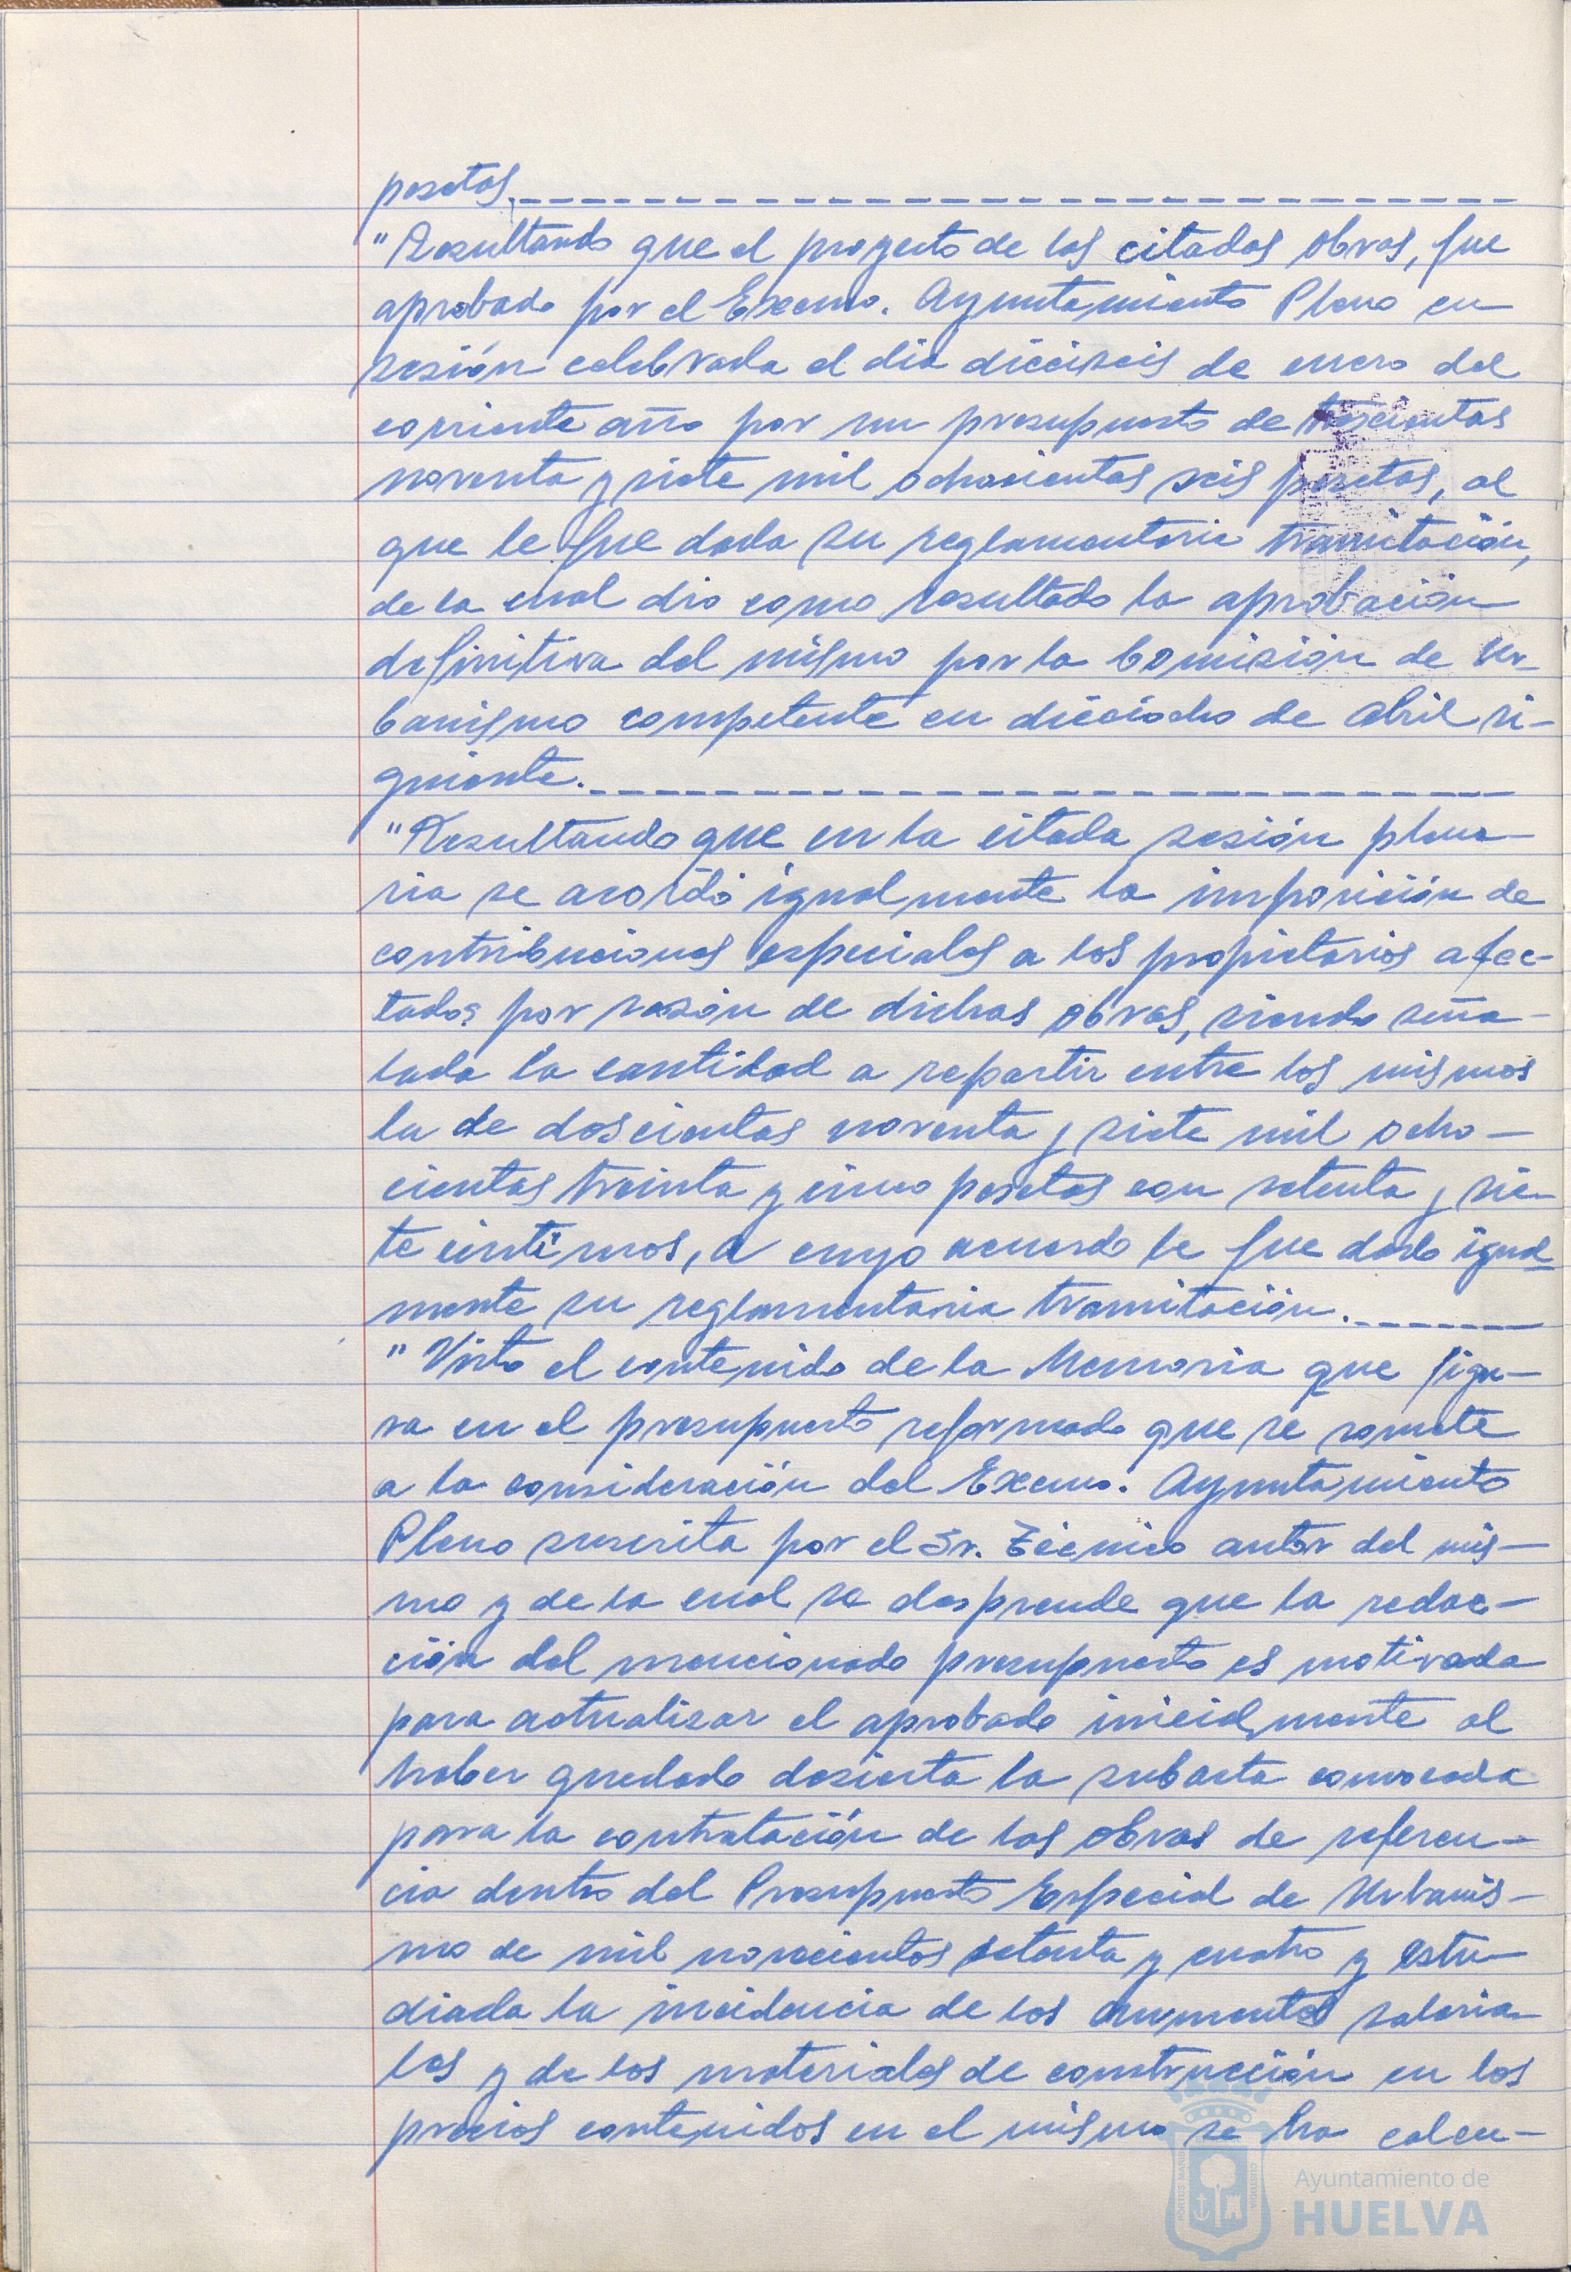 pesetas.
"Resultando que el proyecto de las citadas obras, fue
aprobado por el Excmo. Ayuntamiento Pleno en
sesión celebrada el dia dieciseis de enero del
corriente año por un presupuesto de trescientas
noventa y siete mil ochocientas seis pesetas, al
que le fue dada su reglamentaria tramitación,
de la cual dio como resultado la aprobación
definitiva del mismo por la Comisión de Ur-
banismo competente en dieciocho de abril si-
guiente.
"Resultando que en la citada sesión plena-
ria se acordó igualmente la imposición de
contribuciones especiales a los propietarios afec-
tados por razón de dichas obras, siendo seña-
lada la cantidad a repartir entre los mismos
la de doscientas noventa y siete mil ocho-
cientas treinta y cinco pesetas con setenta y sie-
te centimos, a cuyo acuerdo le fue dado igual-
mente su reglamentaria tramitación.
"Visto el contenido de la Memoria que figu-
ra en el presupuesto reformado que se somete
a la consideración del Excmo. Ayuntamiento
Pleno suscrita por el Sr. Técnico autor del mis-
mo y de la cual se desprende que la redac-
ción del mencionado presupuesto es motivada
para actualizar el aprobado inicialmente al
haber quedado desierta la subasta convocada
para la contratación de las obras de referen-
cia dentro del Presupuesto Especial de Urbanis-
mo de mil novecientos setenta y cuatro y estu-
diada la incidencia de los aumentos salaria-
les y de los materiales de construcción en los
precios contenidos en el mismo se ha calcu-
Ayuntamiento de
HUELVA